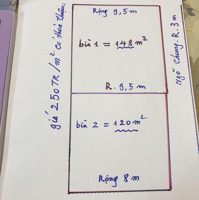 Rộng 9,5 m
bìa 1 = 148 m²
R. 9,5 m
bìa 2 = 120 m²
Rộng 8 m
giá 250TR/m² có thỏa thuận
ngõ chung. R. 3m